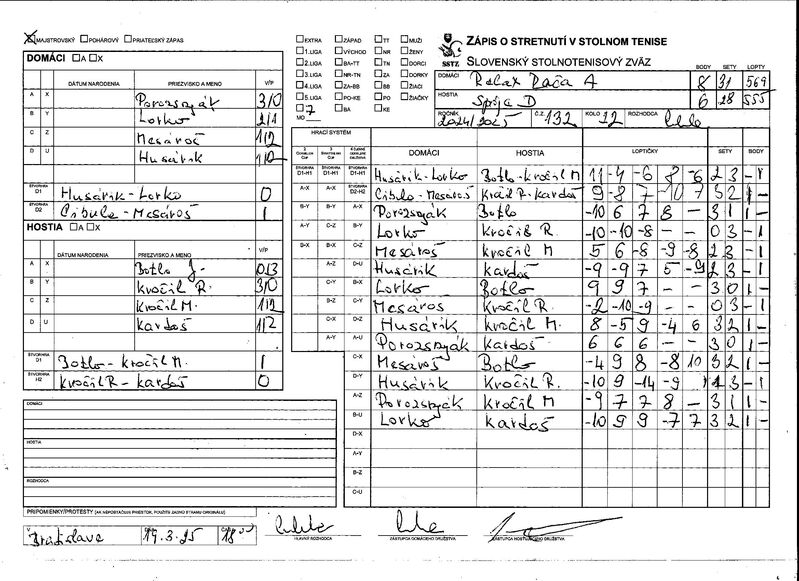 MAJSTROVSKÝ POHÁROVÝ PRIATEĽSKÝ ZÁPAS
DOMÁCI A X
DÁTUM NARODENIA PRIEZVISKO A MENO V/P
A X Porozsnyák 3/0
B Y Lorko 2/1
C Z Mesároš 1/2
D U Husárik 1/2
ŠTVORHRA D1 Husárik - Lorko 0
ŠTVORHRA D2 Cibula - Mesároš 1
HOSTIA A X
DÁTUM NARODENIA PRIEZVISKO A MENO V/P
A X Botlo J. 0/3
B Y Kročil R. 3/0
C Z Kročil M. 1/2
D U Kardoš 1/2
ŠTVORHRA D1 Botlo - Kročil M. 1
ŠTVORHRA H2 Kročil R - Kardoš 0
DOMÁCI
HOSTIA
ROZHODCA
PRIPOMIENKY/PROTESTY (AK NEPOSTAČUJE PRIESTOR, POUŽITE ZADNÚ STRANU ORIGINÁLU)
V Bratislave 17.3.25 18.00
HLAVNÝ ROZHODCA
ZÁSTUPCA DOMÁCEHO DRUŽSTVA
ZÁSTUPCA HOSŤUJÚCEHO DRUŽSTVA
EXTRA ZÁPAD TT MUŽI
1.LIGA VÝCHOD NR ŽENY
2.LIGA BA-TT TN DORCI
3.LIGA NR-TN ZA DORKY
4.LIGA ZA-BB BB ŽIACI
5.LIGA PO-KE PO ŽIAČKY
7 BA KE
MO
SSTZ
ZÁPIS O STRETNUTÍ V STOLNOM TENISE
SLOVENSKÝ STOLNOTENISOVÝ ZVÄZ
BODY SETY LOPTY
DOMÁCI Relax Rača A 8 31 569
HOSTIA Spoje D 6 28 555
ROČNÍK 2024/2025 Č.Z. 132 KOLO 12 ROZHODCA
HRACÍ SYSTÉM
DOMÁCI HOSTIA LOPTIČKY SETY BODY
ŠTVORHRA D1-H1 ŠTVORHRA D1-H1 ŠTVORHRA D1-H1 Husárik - Lorko Botlo - Kročil M 11 -4 -6 8 -6 2 3 - 1
A-X A-X ŠTVORHRA D2-H2 Cibula - Mesároš Kročil R - Kardoš 9 -8 7 -10 7 3 2 1 -
B-Y B-Y A-X Porozsnyák Botlo -10 6 7 8 - 3 1 1 -
A-Y C-Z B-Y Lorko Kročil R. -10 -10 -8 - - 0 3 - 1
B-X B-X C-Z Mesároš Kročil M 5 6 -8 -9 -8 2 3 - 1
A-Z D-U Husárik Kardoš -9 -9 7 5 -9 2 3 - 1
C-Y B-X Lorko Botlo 9 9 7 - - 3 0 1 -
B-Z C-Y Mesároš Kročil R. -2 -10 -9 - - 0 3 - 1
C-X D-Z Husárik Kročil M. 8 -5 9 -4 6 3 2 1 -
A-Y A-U Porozsnyák Kardoš 6 6 6 - - 3 0 1 -
C-X Mesároš Botlo -4 9 8 -8 10 3 2 1 -
D-Y Husárik Kročil R. -10 9 -14 -9 1 3 - 1
A-Z Porozsnyák Kročil M -9 7 7 8 - 3 1 1 -
B-U Lorko Kardoš -10 9 9 -7 7 3 2 1 -
D-X
A-Y
B-Z
C-U